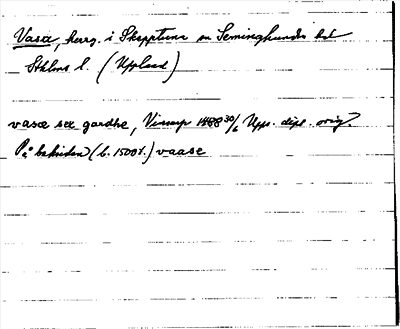 Vasa, herrg. i Skepptuna sn Seminghundra hd
Sthlms l. (Uppland)
vasæ sæ gardhe, 1488 30/6 Upps. dipl. orig.
På baksidan (b. 1500 t.) vaase